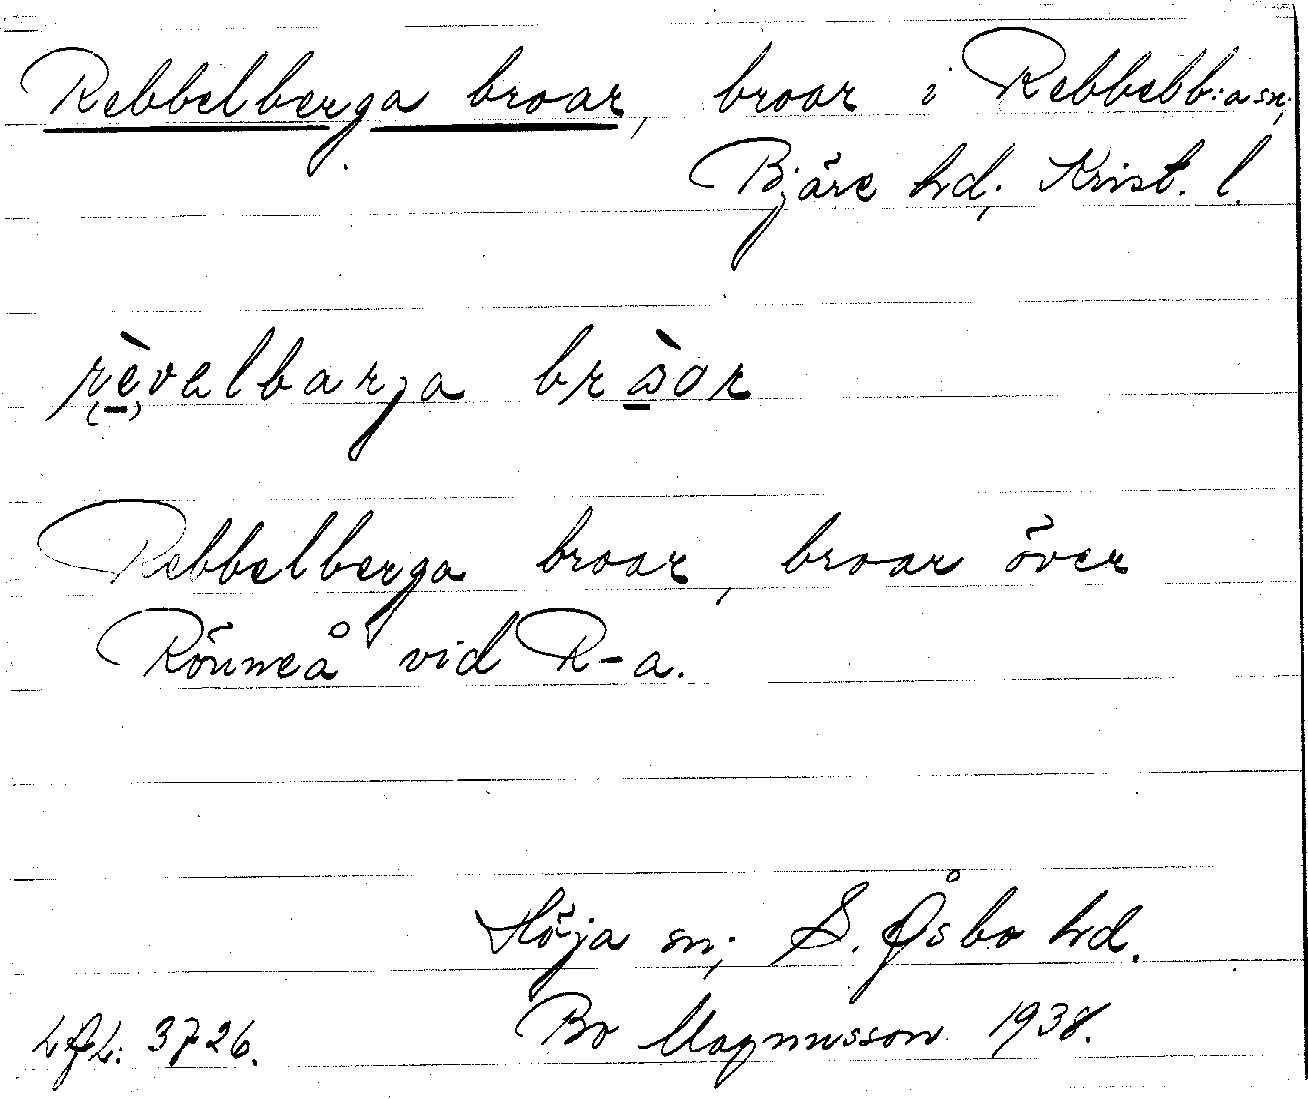 Rebbelberga broar, broar i Rebbelb:a sn;
Bjäre hd; Krist. l.
rèvelbarga bròar
Rebbelberga broar, broar över
Rönneå vid R-a.
Höja sn; S. Åsbo hd.
Bo Magnusson 1938.
LAL: 3726.